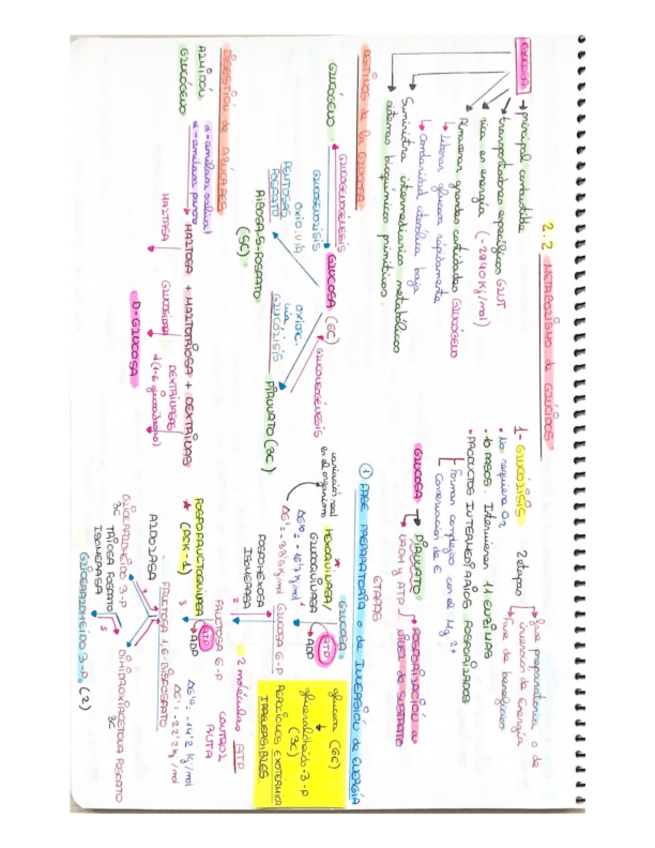 2.2 METABOLISMO de GLÚCIDOS
GLUCOSA → principal combustible
transportadores específicos GLUT
rica en energía (-2840 Kj/mol)
Almacenar grandes cantidades GLUCÓGENO
↳ Liberar glucosa rápidamente
↳ Osmolaridad citosólica baja
Suministra intermediarios metabólicos
sistemas bioquímicos primitivos.
DESTINOS de la GLUCOSA
GLUCOGENOGENESIS
GLUCÓGENO
GLUCOSA (6C)
GLUCOGENOLISIS
GLUCONEOGÉNESIS
OXID. VIA
PENTOSAS
FOSFATO
OXIDAC.
vía
GLUCÓLISIS
RIBOSA-5-FOSFATO
(5C)
PIRUVATO (3C)
DIGESTIÓN de AZÚCARES
ALMIDÓN
GLUCÓGENO
α-amilasa salival
α-amilasa pancre
MALTOSA + MALTOTRIOSA + DEXTRINAS
MALTASA
GLUCOSIDASA
DEXTRINASAS
α(1-6 glucosidasa)
D-GLUCOSA
1- GLUCÓLISIS
2 etapas
Fase preparatoria o de
inversión de Energía
Fase de beneficios
• No requiere O2
• 10 PASOS. Intervienen 11 ENZIMAS
• PRODUCTOS INTERMEDIARIOS FOSFORILADOS
Forman complejos con el Mg 2+
Conservación de E
GLUCOSA → PIRUVATO
NADH y ATP
FOSFORILACIÓN a
NIVEL de SUSTRATO
ETAPAS
① FASE PREPARATORIA o de INVERSIÓN de ENERGÍA
variación real
en el organismo
HEXOQUINASA/
GLUCOQUINASA
ΔG'º = -16'7 Kj/mol
ΔG' = -33'5 Kj/mol
GLUCOSA
1
ATP
ADP
GLUCOSA 6-P
glucosa (6C)
↓
gliceraldehído-3-P
(3C)
REACCIONES EXOTÉRMICA
IRREVERSIBLES
FOSFOHEXOSA
ISOMERASA
2
FRUCTOSA 6-P
2 moléculas ATP
CONTROL
RUTA
FOSFOFRUCTOQUINASA
★ (PFK-1)
3
ATP
ADP
ΔG'º = -14'2 Kj/mol
ΔG' = -22'2 Kj/mol
FRUCTOSA 1,6-BISFOSFATO
ALDOLASA
4
GLICERALDEHÍDO 3-P
3C
DIHIDROXIACETONA FOSFATO
3C
TRIOSA FOSFATO
ISOMERASA
5
GLICERALDEHÍDO 3-P. (2)